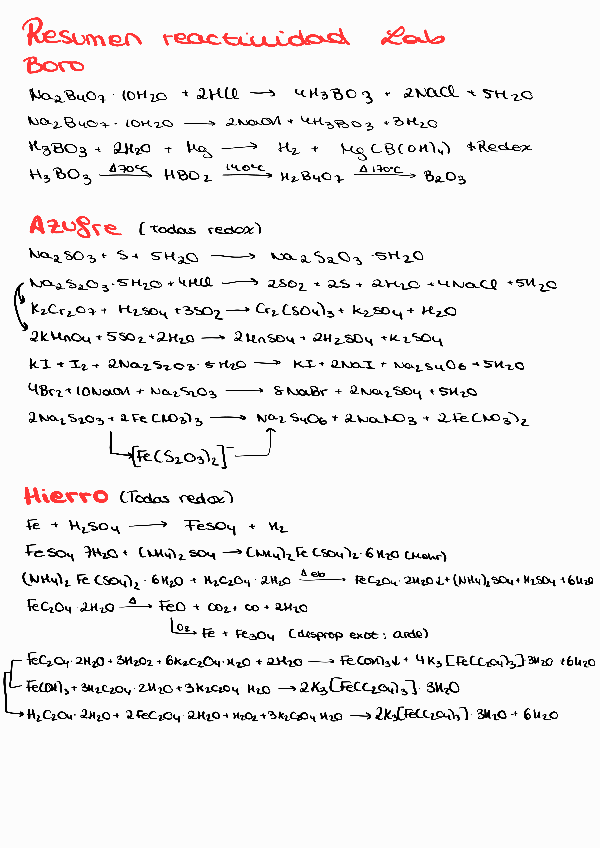 Resumen reactividad Lab
Boro
Na2B4O7·10H2O + 2HCl → 4H3BO3 + 2NaCl + 5H2O
Na2B4O7·10H2O → 2NaOH + 4H3BO3 + 3H2O
H3BO3 + 2H2O + Mg → H2 + Mg(B(OH)4) *Redox
H3BO3 →(Δ70ºC) HBO2 →(140ºC) H2B4O7 →(Δ170ºC) B2O3
Azufre (Todas redox)
Na2SO3 + S + 5H2O → Na2S2O3·5H2O
Na2S2O3·5H2O + 4HCl → 2SO2 + 2S + 2H2O + 4NaCl + 5H2O
K2Cr2O7 + H2SO4 + 3SO2 → Cr2(SO4)3 + K2SO4 + H2O
2KMnO4 + 5SO2 + 2H2O → 2MnSO4 + 2H2SO4 + K2SO4
KI + I2 + 2Na2S2O3·5H2O → KI + 2NaI + Na2S4O6 + 5H2O
4Br2 + 10NaOH + Na2S2O3 → 8NaBr + 2Na2SO4 + 5H2O
2Na2S2O3 + 2Fe(NO3)3 → Na2S4O6 + 2NaNO3 + 2Fe(NO3)2
[Fe(S2O3)2]⁻
Hierro (Todas redox)
Fe + H2SO4 → FeSO4 + H2
FeSO4 7H2O + (NH4)2SO4 → (NH4)2Fe(SO4)2·6H2O (Mohr)
(NH4)2Fe(SO4)2·6H2O + H2C2O4·2H2O →(Δ eb) FeC2O4·2H2O↓ + (NH4)2SO4 + H2SO4 + 6H2O
FeC2O4·2H2O →(Δ) FeO + CO2 + CO + 2H2O
O2 → Fe + Fe3O4 (desprop exot: arde)
FeC2O4·2H2O + 3H2O2 + 6K2C2O4·H2O + 2H2O → Fe(OH)3↓ + 4K3[Fe(C2O4)3]·3H2O + 6H2O
Fe(OH)3 + 3H2C2O4·2H2O + 3K2C2O4 H2O → 2K3[Fe(C2O4)3]·3H2O
H2C2O4·2H2O + 2FeC2O4·2H2O + H2O2 + 3K2C2O4 H2O → 2K3[Fe(C2O4)3]·3H2O + 6H2O